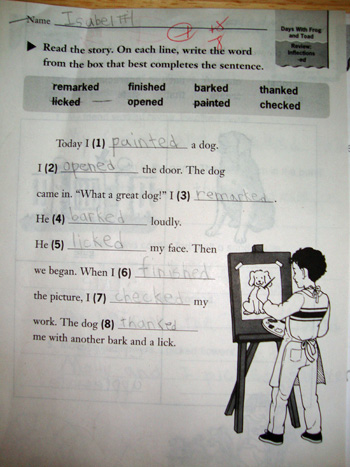 Name Isabel
Days With Frog
and Toad
Review:
Inflections
-ed
Read the story. On each line, write the word
from the box that best completes the sentence.
remarked finished barked thanked
licked opened painted checked
Today I (1) painted a dog.
I (2) opened the door. The dog
came in. “What a great dog!” I (3) remarked.
He (4) barked loudly.
He (5) licked my face. Then
we began. When I (6) finished
the picture, I (7) checked my
work. The dog (8) thanked
me with another bark and a lick.